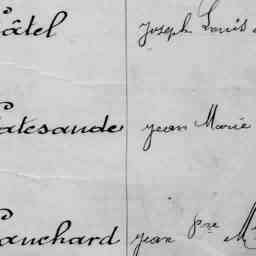 Pâtel Joseph Louis
Patesaude Jean Marie
Pauchard Jean Pre M